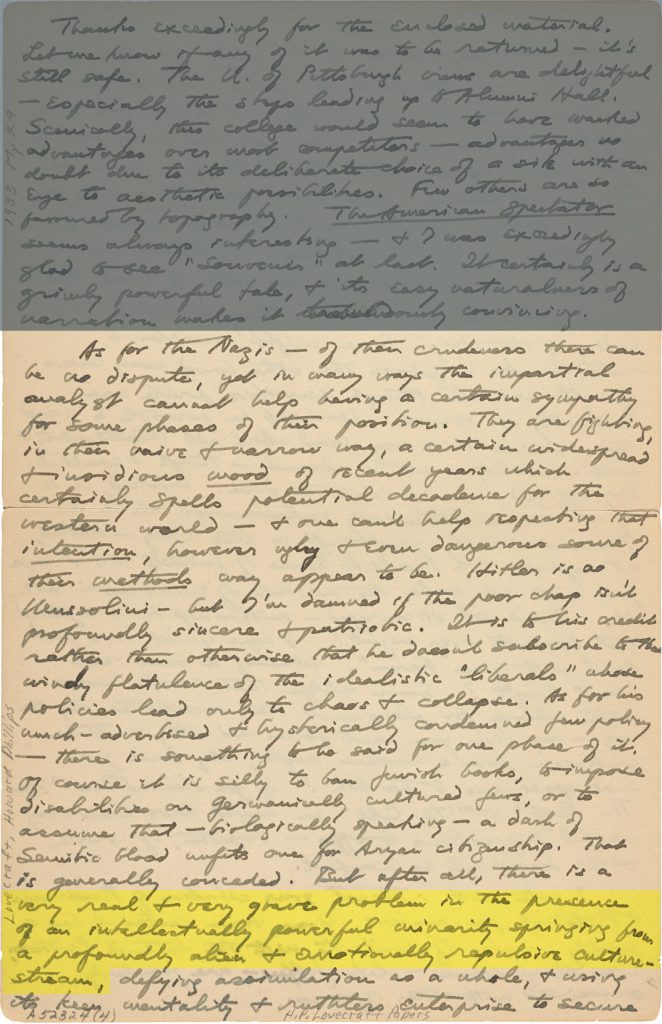 Thanks exceedingly for the enclosed material.
Let me know if any of it was to be returned – it's
still safe. The U. of Pittsburgh views are delightful
– especially the steps leading up to Alumni Hall.
Scenically, this college would seem to have marked
advantages over most competitors – advantages no
doubt due to its deliberate choice of a site with an
eye to aesthetic possibilities. Few others are so
favoured by topography. The American Spectator
seems always interesting – & I was exceedingly
glad to see "Souvenir" at last. It certainly is a
grimly powerful tale, & its easy naturalness of
narration makes it convincing.
As for the Nazis – of their crudeness there can
be no dispute, yet in many ways the impartial
analyst cannot help having a certain sympathy
for some phases of their position. They are fighting,
in their naive & narrow way, a certain widespread
& insidious mood of recent years which
certainly spells potential decadence for the
western world – & one can't help respecting that
intention, however ugly & even dangerous some of
their methods may appear to be. Hitler is no
Mussolini – but I'm damned if the poor chap isn't
profoundly sincere & patriotic. It is to his credit
rather than otherwise that he doesn't subscribe to the
windy flatulence of the idealistic "liberals" whose
policies lead only to chaos & collapse. As for his
much-advertised & hysterically condemned Jew policy
– there is something to be said for one phase of it.
Of course it is silly to ban Jewish books, to impose
disabilities on Germanically cultured Jews, or to
assume that – biologically speaking – a dash of
Semitic blood unfits one for Aryan citizenship. That
is generally conceded. But after all, there is a
very real & very grave problem in the presence
of an intellectually powerful minority springing from
a profoundly alien & emotionally repulsive culture-
stream, defying assimilation as a whole, & using
its keen mentality & ruthless enterprise to secure
A52324(4) H.P. Lovecraft Papers
1933 My 29
Lovecraft, Howard Phillips